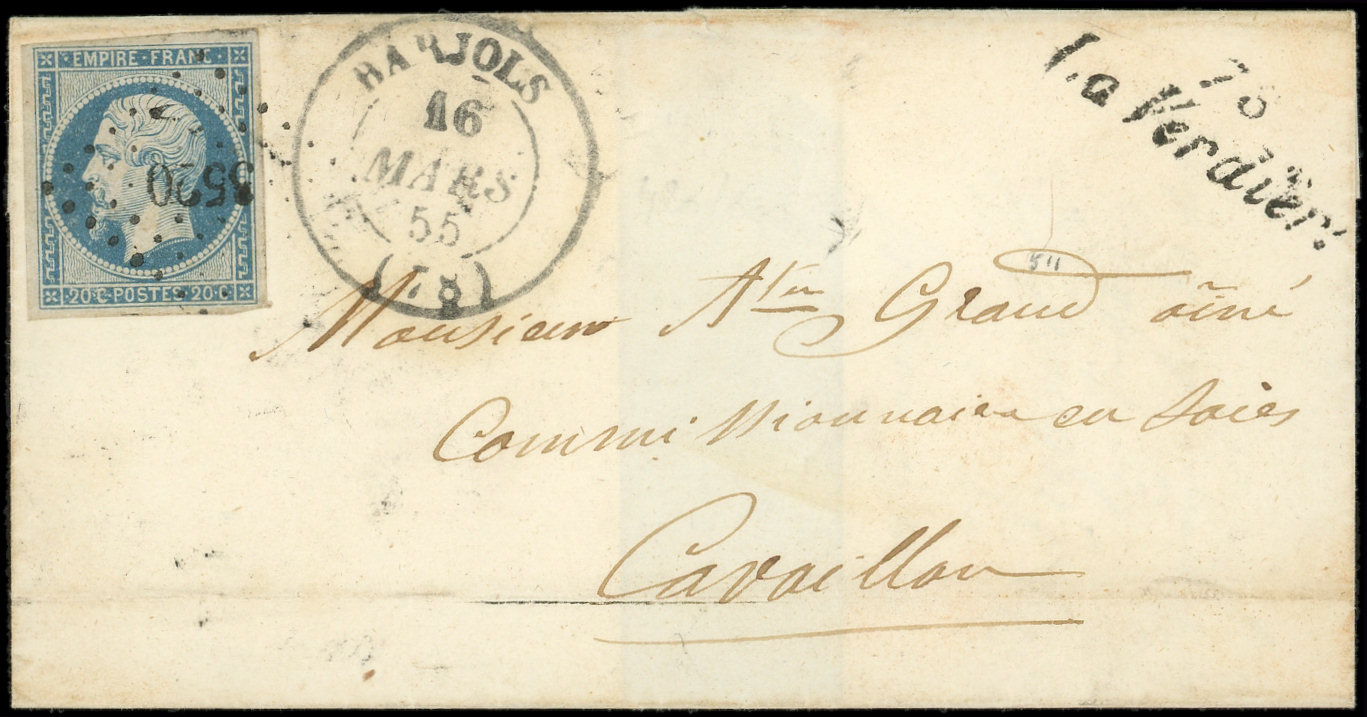 EMPIRE · FRANC
20·C·POSTES·20·C
BARJOLS
16
MARS
55
(78)
78
La Verdière
Monsieur Atin Grand aîné
Commissionnaire en Soies
Cavaillon